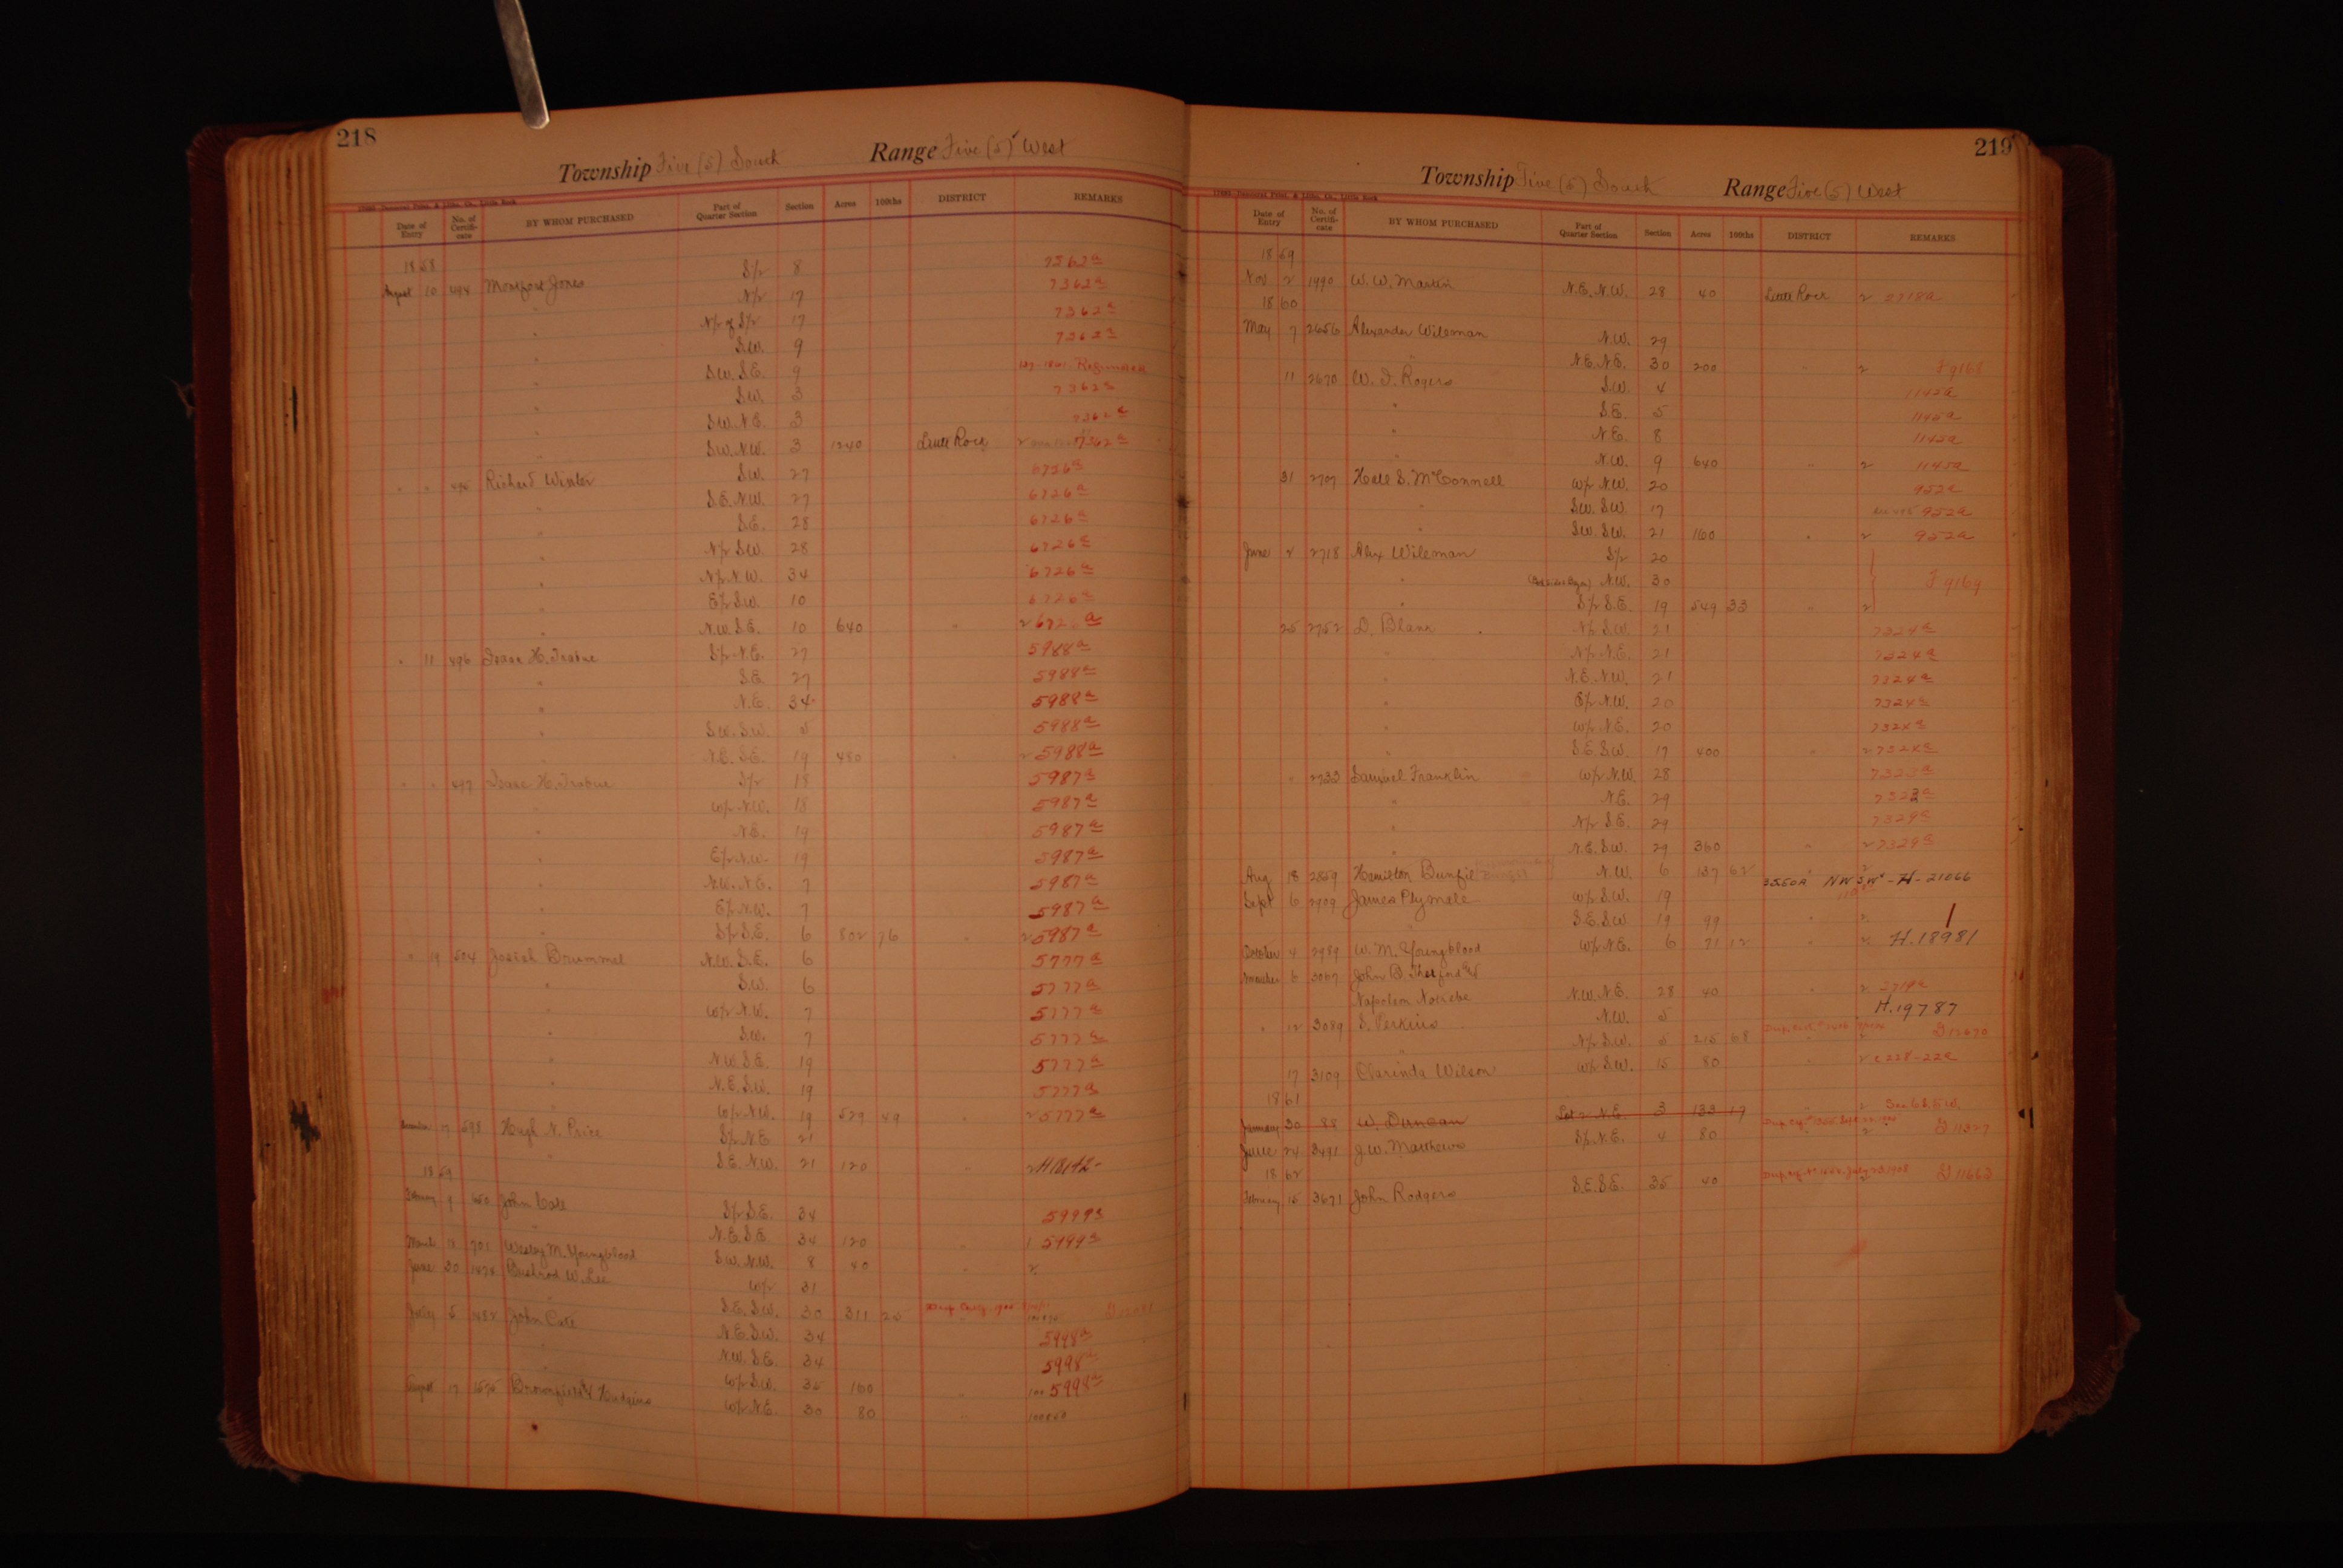 218
Township Five (5) South Range Five (5) West
Date of Entry No. of Certificate BY WHOM PURCHASED Part of Quarter Section Section Acres 100ths DISTRICT REMARKS
1858
August 10 494 Montfort Jones S/2 8 7362a
" N/2 17 7362a
" N/2 of S/2 17 7362a
" S.W. 9 7362a
" S.W. S.E. 9
" S.W. 3 7362a
" S.W. N.E. 3 7362a
" S.W. N.W. 3 1240 Little Rock 7362a
" " 495 Richard Winter S.W. 27 6726a
" S.E. N.W. 27 6726a
" S.E. 28 6726a
" N/2 S.W. 28 6726a
" N/2 N.W. 34 6726a
" E/2 S.W. 10 6726a
" N.W. S.E. 10 640 "
" 11 496 Isaac H. Trabue S/2 N.E. 27 5988a
" S.E. 27 5988a
" N.E. 34 5988a
" S.W. S.W. 5988a
" N.E. S.E. 19 480 " 2 5988a
" " 497 Isaac H. Trabue S/2 18 5987a
" W/2 N.W. 18 5987a
" N.E. 19 5987a
" E/2 N.W. 19 5987a
" N.W. N.E. 7 5987a
" E/2 N.W. 7 5987a
" S/2 S.E. 6 802 76 " 2 5987a
" 19 504 Josiah Brummel N.W. S.E. 6 5777a
" S.W. 6 5777a
" W/2 N.W. 7 5777a
" S.W. 7 5777a
" N.W. S.E. 19 5777a
" N.E. S.W. 19 5777a
" W/2 N.W. 19 529 49 " 2 5777a
17 598 Hugh N. Price S/2 N.E. 21
" S.E. N.W. 21 120 "
1859
February 9 650 John Cate S/2 S.E. 34 5999a
" N.E. S.E. 34 120 " 1 5999a
March 15 701 Wesley M. Youngblood S.W. N.W. 8 40 " 2
June 30 1474 Bushrod W. Lee W/2 31
" S.E. S.W. 30 311 20
July 5 1482 John Cate N.E. S.W. 34 5998a
" N.W. S.E. 34 5998a
" W/2 S.W. 35 160 " 5998a
August 17 Brownfield & Hudgins W/2 N.E. 30 80 "
219
Township Five (5) South Range Five (5) West
Date of Entry No. of Certificate BY WHOM PURCHASED Part of Quarter Section Section Acres 100ths DISTRICT REMARKS
1859
Nov 2 1990 W. W. Martin N.E. N.W. 28 40 Little Rock 2 2718a
1860
May 7 2656 Alexander Wileman N.W. 29
" N.E. N.E. 30 200 " 2 F 9168
11 2670 W. F. Rogers S.W. 4 1145a
" S.E. 5 1145a
" N.E. 8 1145a
" N.W. 9 640 " 2 1145a
31 2707 Hall S. McConnell W/2 N.W. 20 952a
" S.W. S.W. 17 952a
" S.W. S.W. 21 160 " 2 952a
June 2 2718 Alex Wileman S/2 20
" N.W. 30 F 9169
" S/2 S.E. 19 549 33 " 2
25 2752 D. Blann N/2 S.W. 21 7324a
" N/2 N.E. 21 7324a
" N.E. N.W. 21 7324a
" E/2 N.W. 20 7324a
" W/2 N.E. 20 7324a
" S.E. S.W. 17 400 " 2 7324a
" 2733 Samuel Franklin W/2 N.W. 28 7323a
" N.E. 29 7323a
" N/2 S.E. 29 7329a
" N.E. S.W. 29 360 " 2 7329a
Aug 18 2859 Hamilton Bunfil N.W. 6 137 62 " 2
NW SW - H - 21066
Sept 6 2909 James Plymale W/2 S.W. 19
" S.E. S.W. 19 99 " 2
October 4 2989 W. M. Youngblood W/2 N.E. 6 71 12 " 2 H. 18981
6 3067 John D. Therford &
Napoleon Norcebe N.W. N.E. 28 40 " 2 2719a
" 12 3089 S. Perkins N.W. 5 H. 19787
" N/2 S.W. 5 215 68 G 13670
17 3109 Clarinda Wilson W/2 S.W. 15 80 " 2 C 228-22a
1861
January 30 88 W. Duncan Lot 2 N.E. 3 133 19
June 24 3491 J. W. Matthews S/2 N.E. 4 80 G 11327
1862
February 15 3671 John Rodgers S.E. S.E. 35 40 G 11663